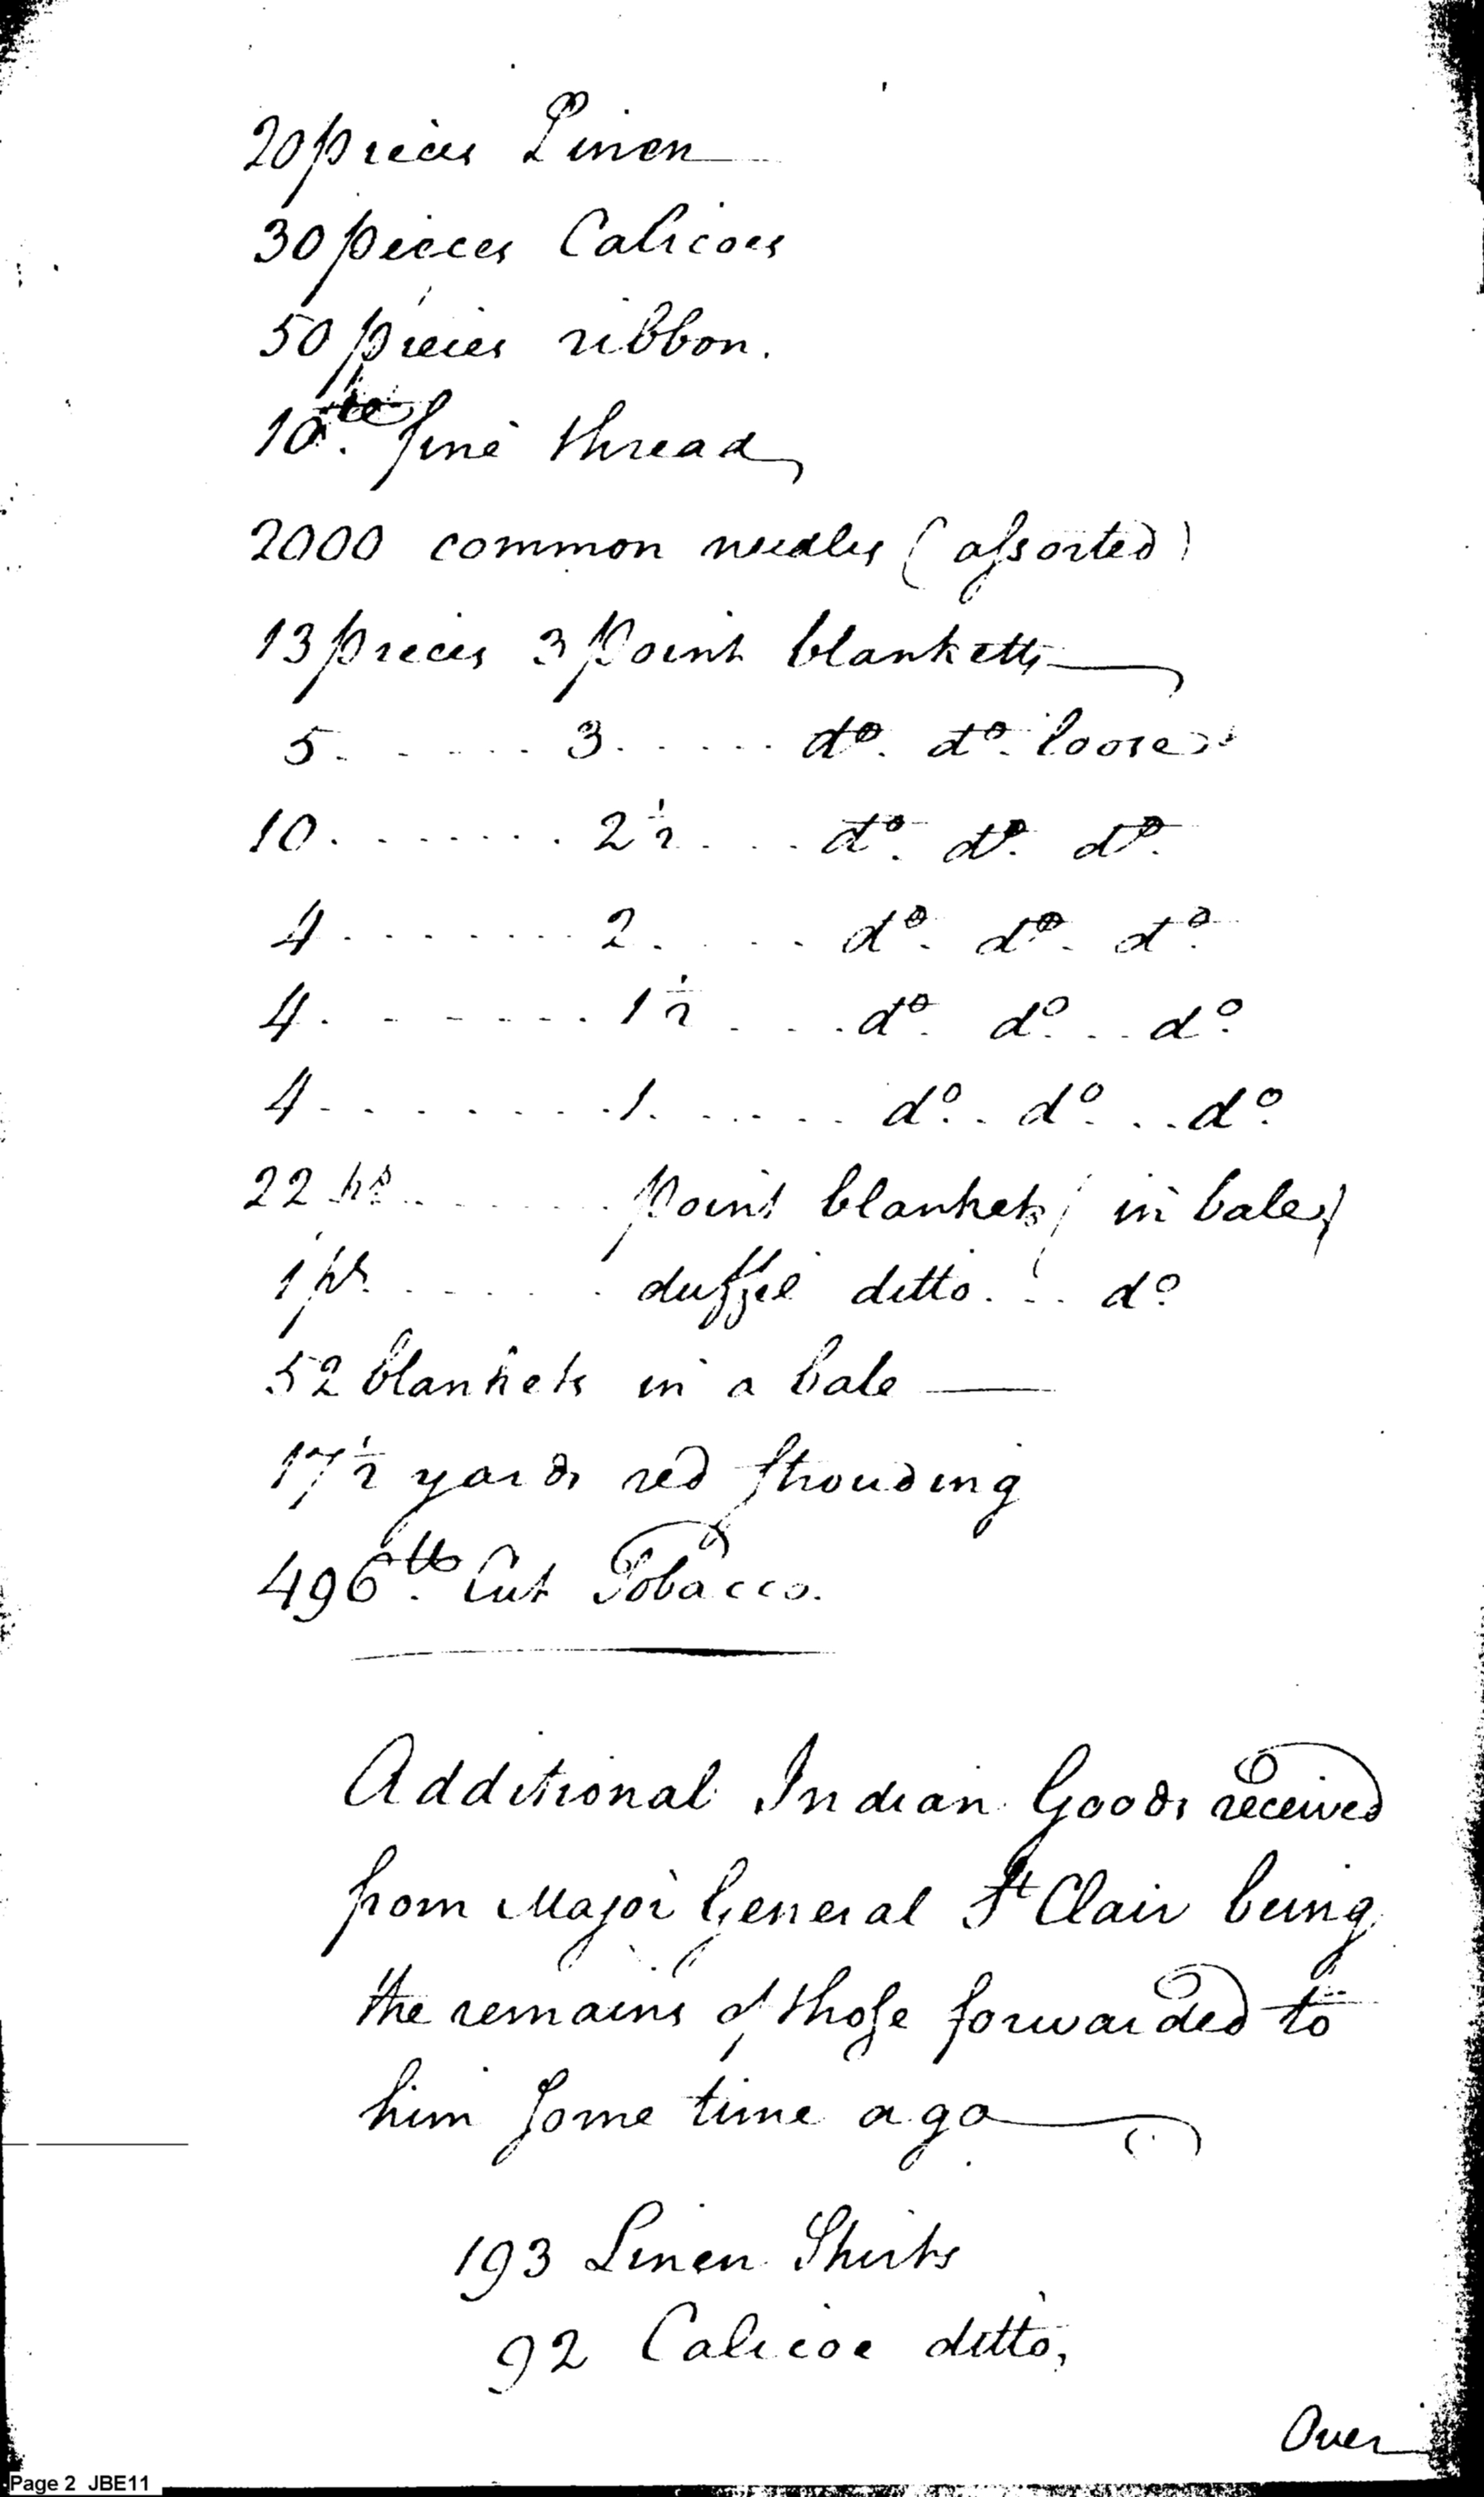 20 pieces Linen
30 pieces Calicoes
50 pieces ribbon.
10 lb. fine thread
2000 common needles (assorted)
13 pieces 3 point blanketts
5 . . . . . . 3 . . . . . . do. do. loose
10 . . . . . . . 2 1/2 . . . . do. do. do.
4 . . . . . . . . 2 . . . . . do. do. do.
4 . . . . . . . 1 1/2 . . . . do. do. . . do.
4 . . . . . . . . 1 . . . . . . do. . do. . . do.
22 ps . . . . . . . . point blankets (in bales)
1 ps. . . . . . . duffil ditto . . . do.
52 blankets in a bale
17 1/2 yards red Strouding
496 lb. Cut Tobacco.
Additional Indian Goods received
from Major General St Clair being
the remains of those forwarded to
him Some time ago
193 Linen Shirts
92 Calicoe ditto,
Over
Page 2 JBE11